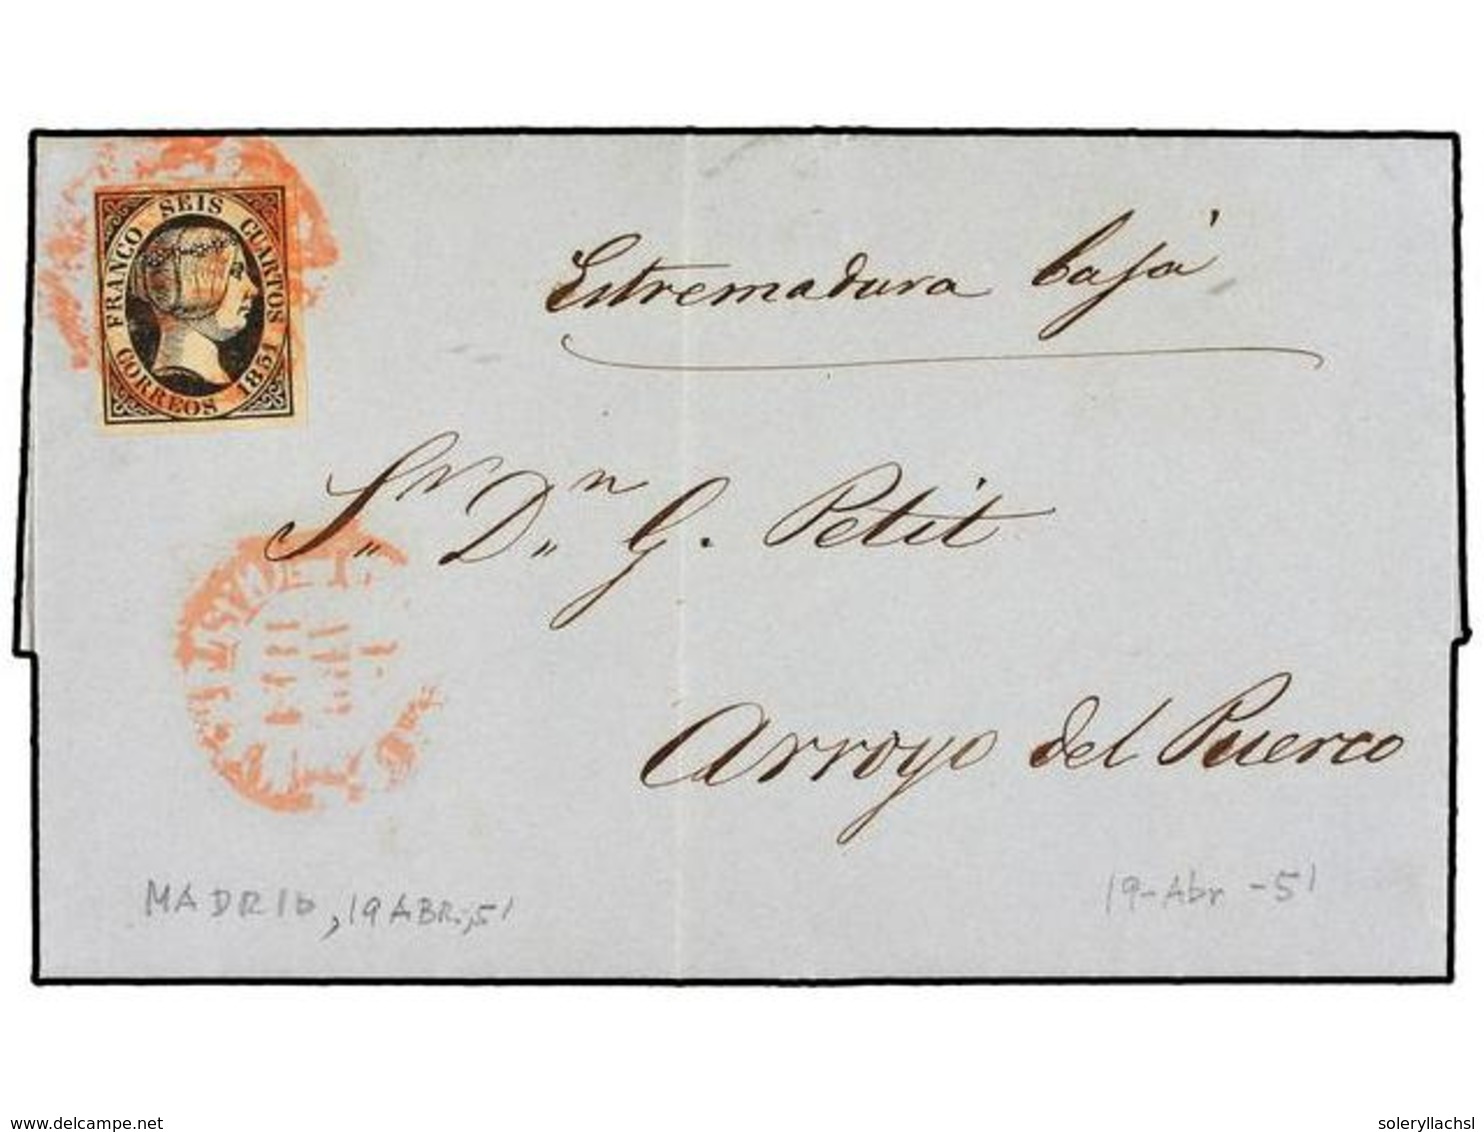 FRANCO SEIS CUARTOS
CORREOS 1851
Estremadura baja
Sr. Dn. G. Petit
Arroyo del Puerco
MADRID, 19 ABR., 51
19-Abr -51
www.delcampe.net
soleryllachsl